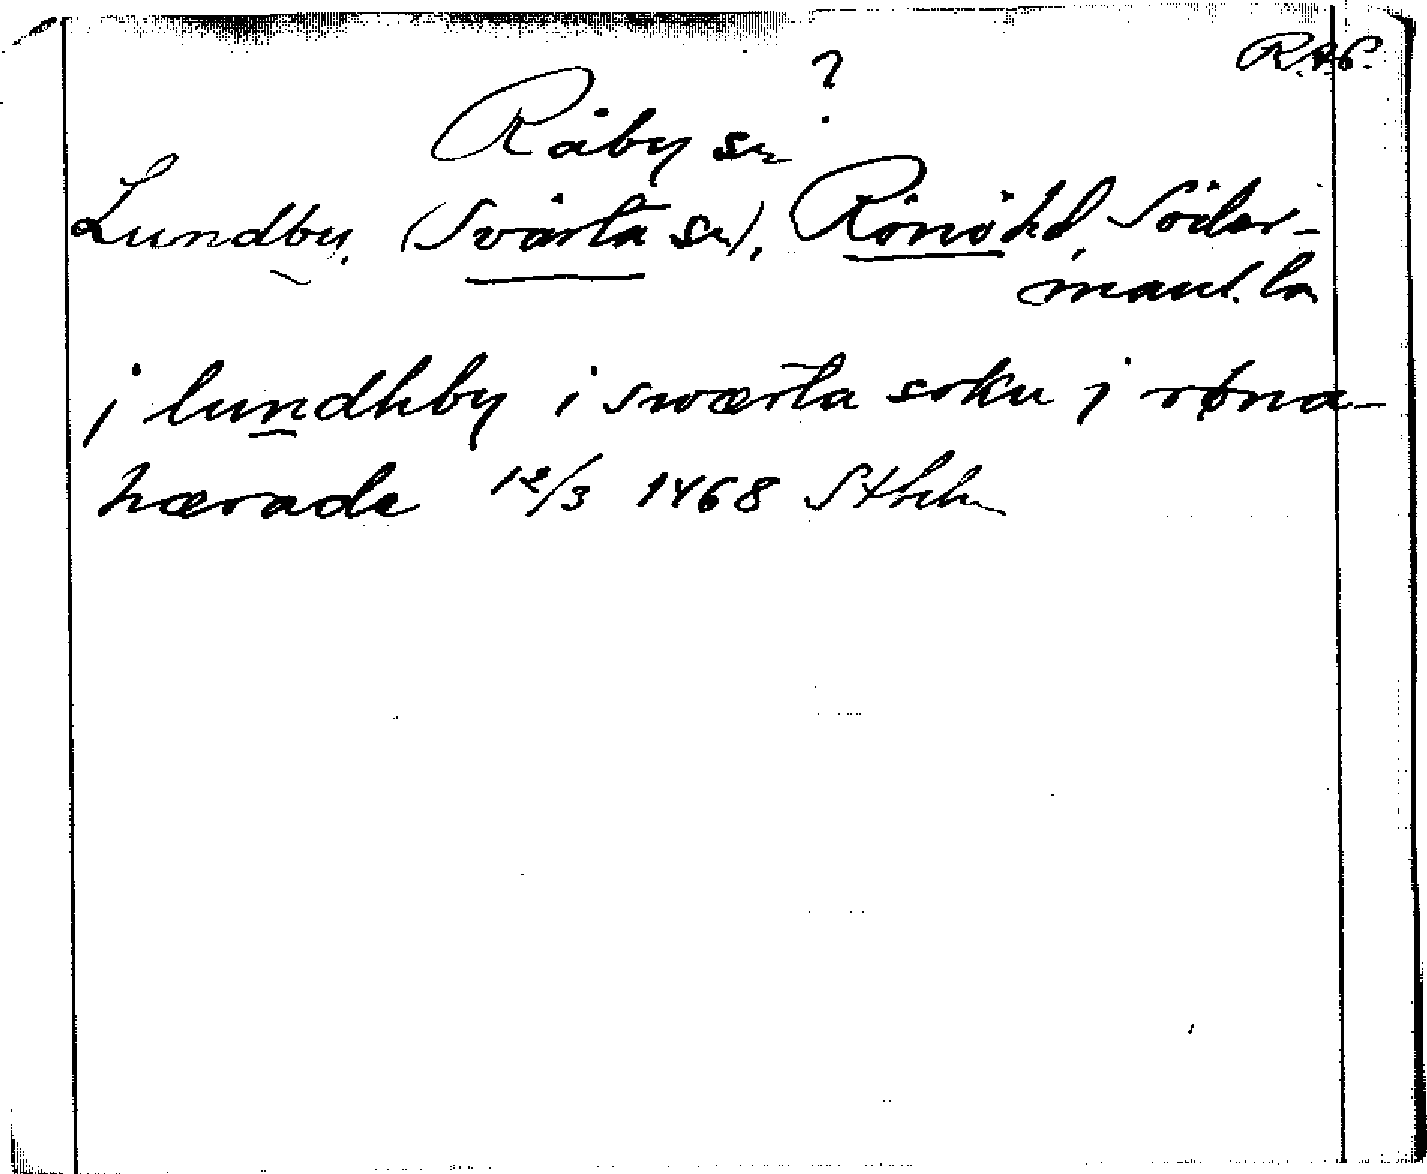 R.A.P.
?
Råby sn
Lundby, (Svärta sn), Rönö hd, Söder-
manl. län
j lundhby i swærta sokn j røna-
hæradе 12/3 1468 Sthlm